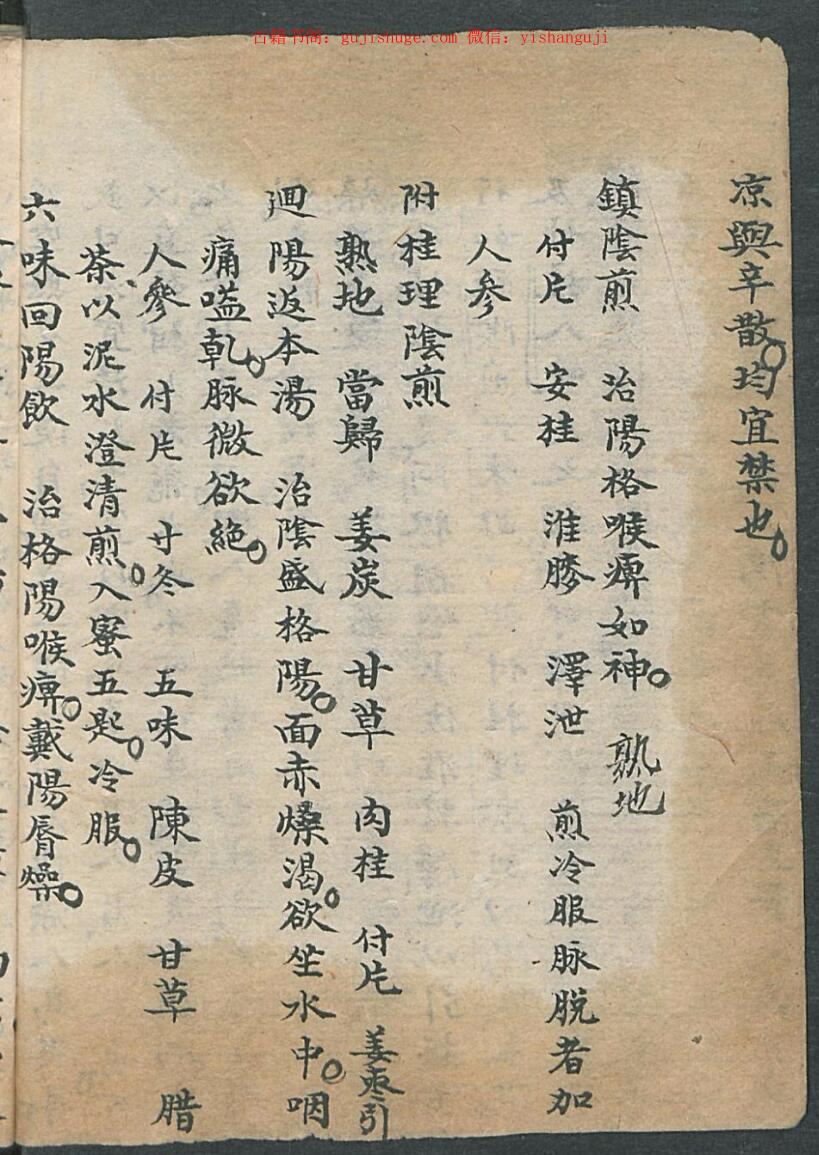 古籍书阁：gujishuge.com 微信：yishanguji
凉與辛散。均宜禁也。
鎮陰煎　治陽格喉痺如神。　熟地
付片　安桂　淮膝　澤泄　煎冷服脉脱者加
人參
附桂理陰煎
熟地　當歸　姜炭　甘草　肉桂　付片　姜枣引
廻陽返本湯　治陰盛格陽。面赤燥渴。欲坐水中。咽
痛嗌乾。脉微欲絶。
人參　付片　寸冬　五味　陳皮　甘草　腊
茶、以泥水澄清煎。入蜜五匙。冷服。
六味回陽飲　治格陽喉痺。戴陽唇燥。